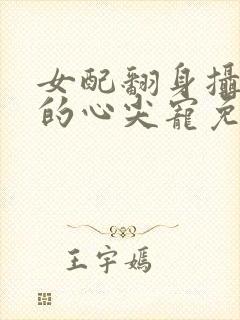 女配翻身攝
的心尖寵免
王宇嫣